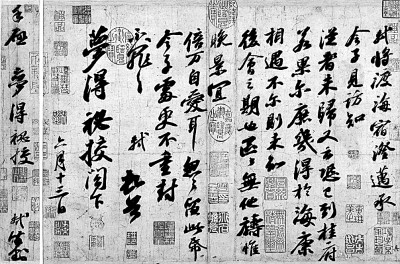 軾將渡海宿澄邁承
令子見訪知
從者未歸又云恐已到桂府
若果尔庶幾得於海康
相遇不尔則未知
後會之期也區區無他禱惟
晚景宜
倍萬自愛耳匆匆留此帋
令子處更不重封
不罪不罪
軾頓首
夢得秘校閣下
六月十三日
手啟 夢得秘校 軾封